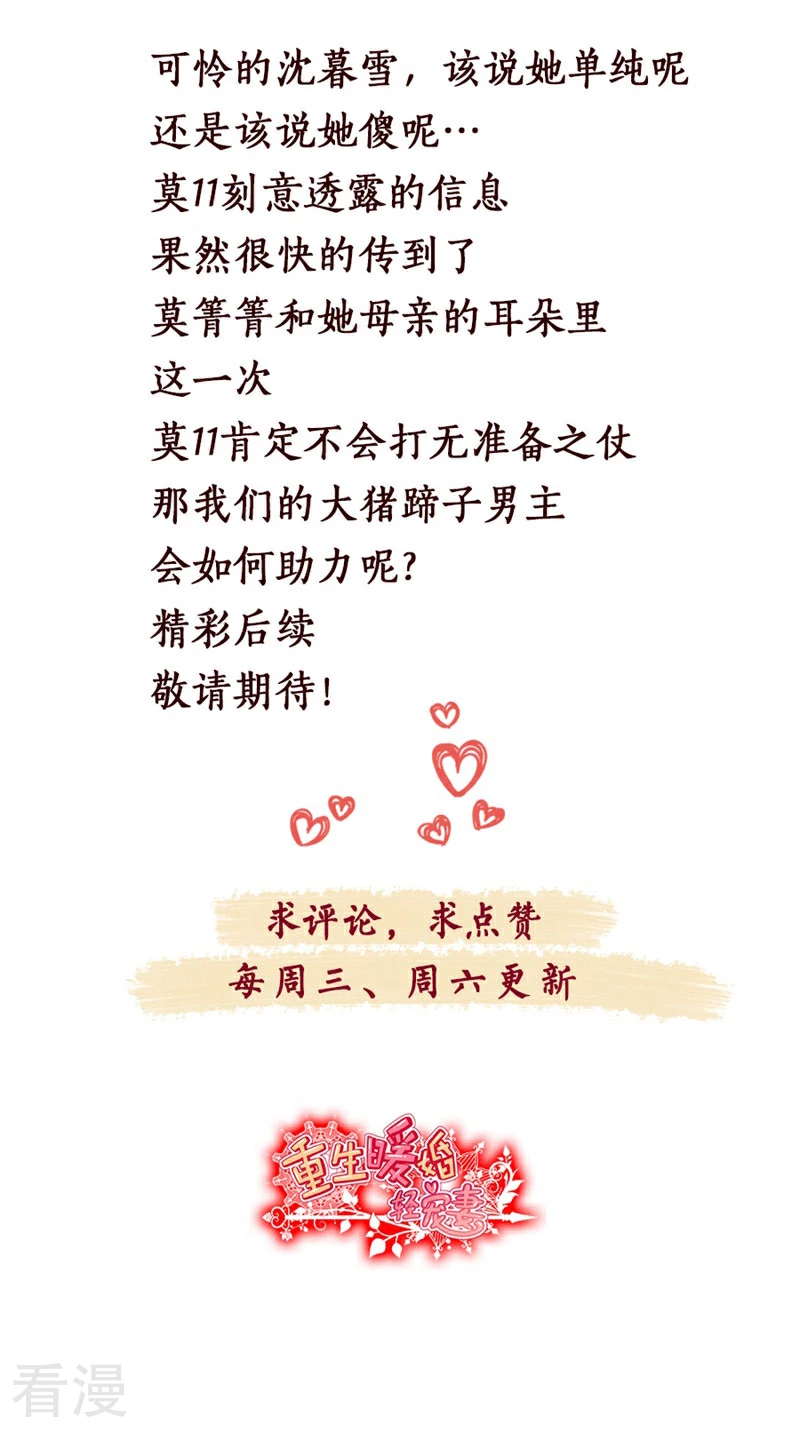 可怜的沈暮雪，该说她单纯呢
还是该说她傻呢…
莫11刻意透露的信息
果然很快的传到了
莫箐箐和她母亲的耳朵里
这一次
莫11肯定不会打无准备之仗
那我们的大猪蹄子男主
会如何助力呢?
精彩后续
敬请期待!
求评论，求点赞
每周三、周六更新
重生暖婚
轻宠妻
看漫